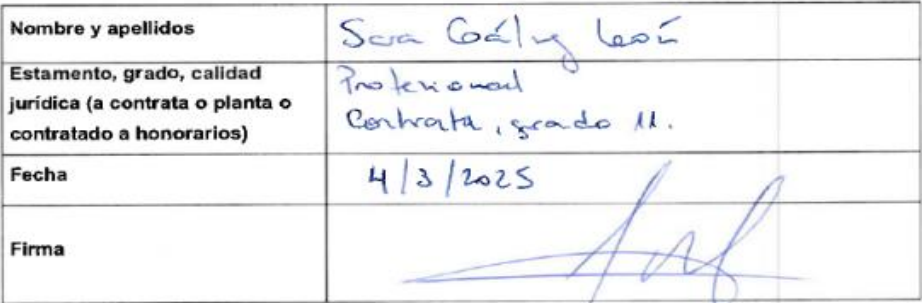 Nombre y apellidos
Sara Gálvez León
Estamento, grado, calidad
jurídica (a contrata o planta o
contratado a honorarios)
Profesional
Contrata, grado 11.
Fecha
4/3/2025
Firma